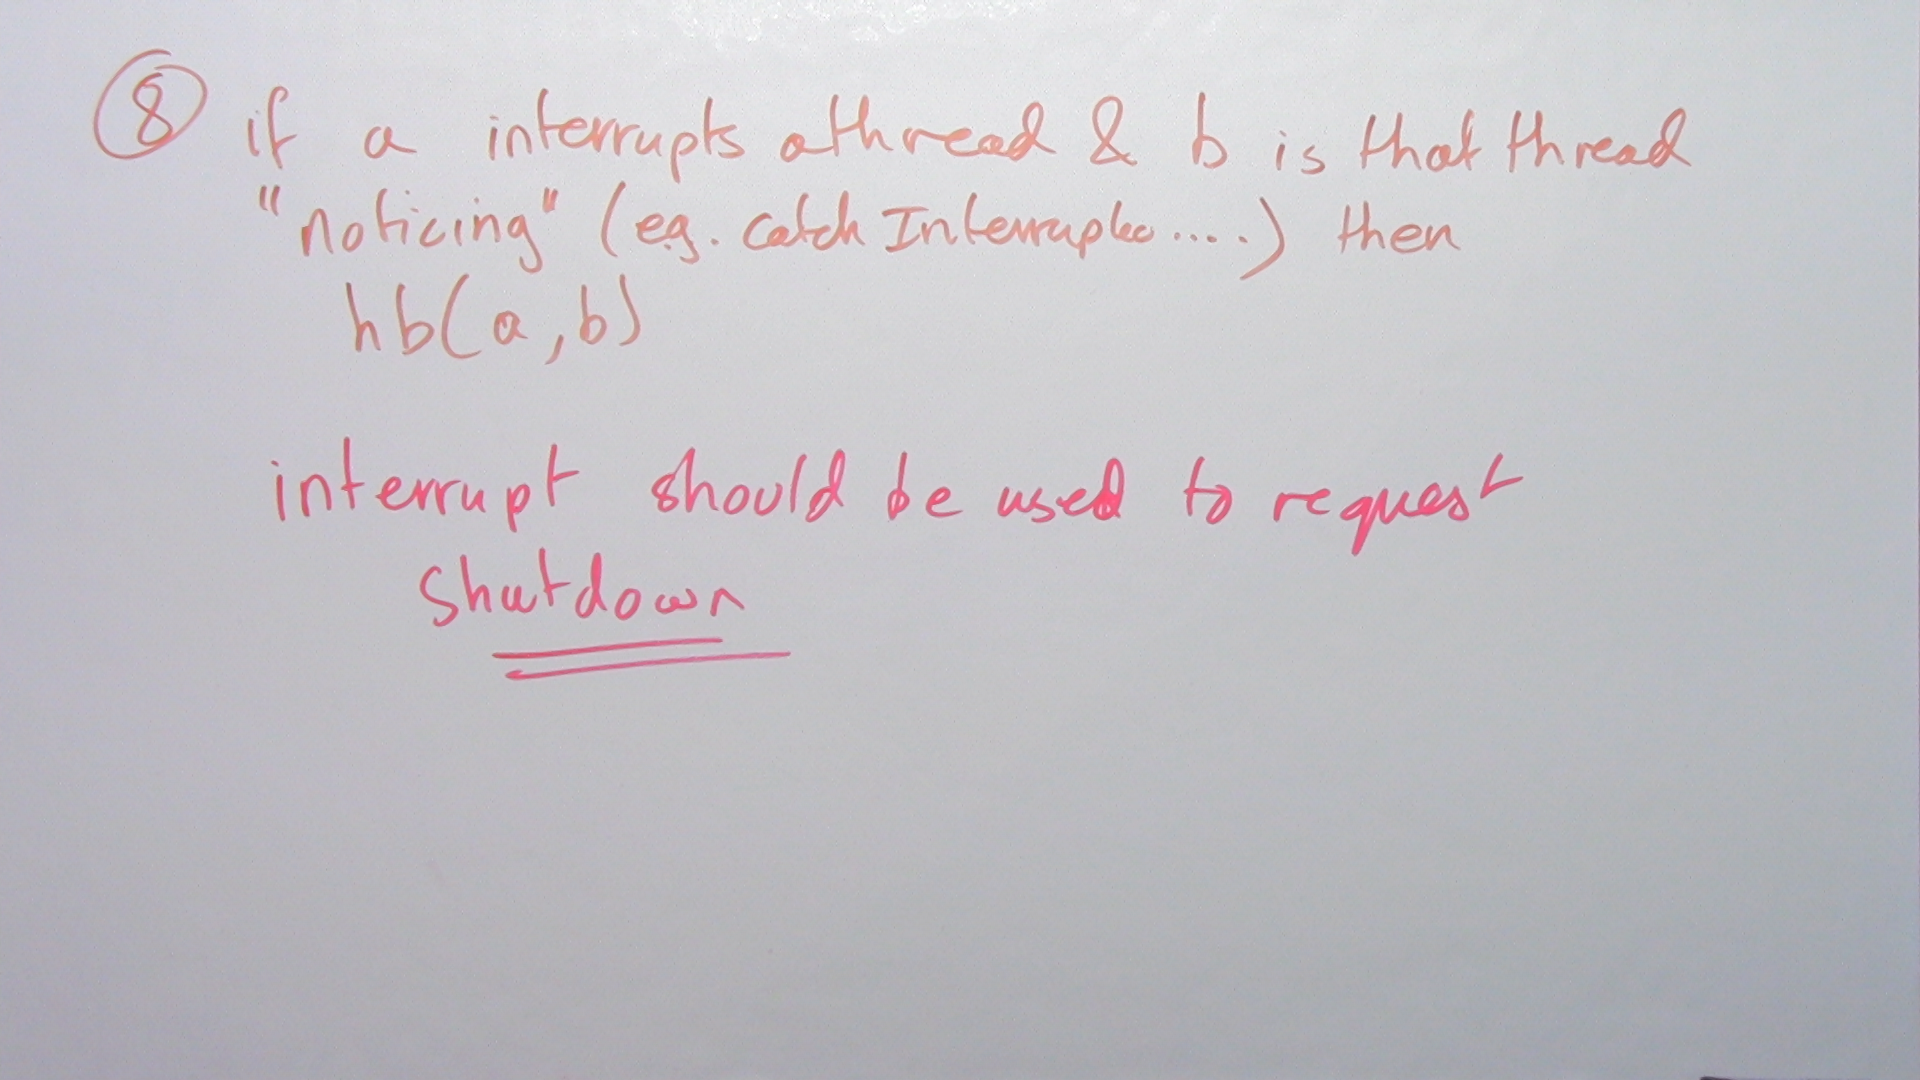 ⑧ if a interrupts a thread & b is that thread
"noticing" (eg. catch Interrupte....) then
hb(a,b)
interrupt should be used to request
shutdown